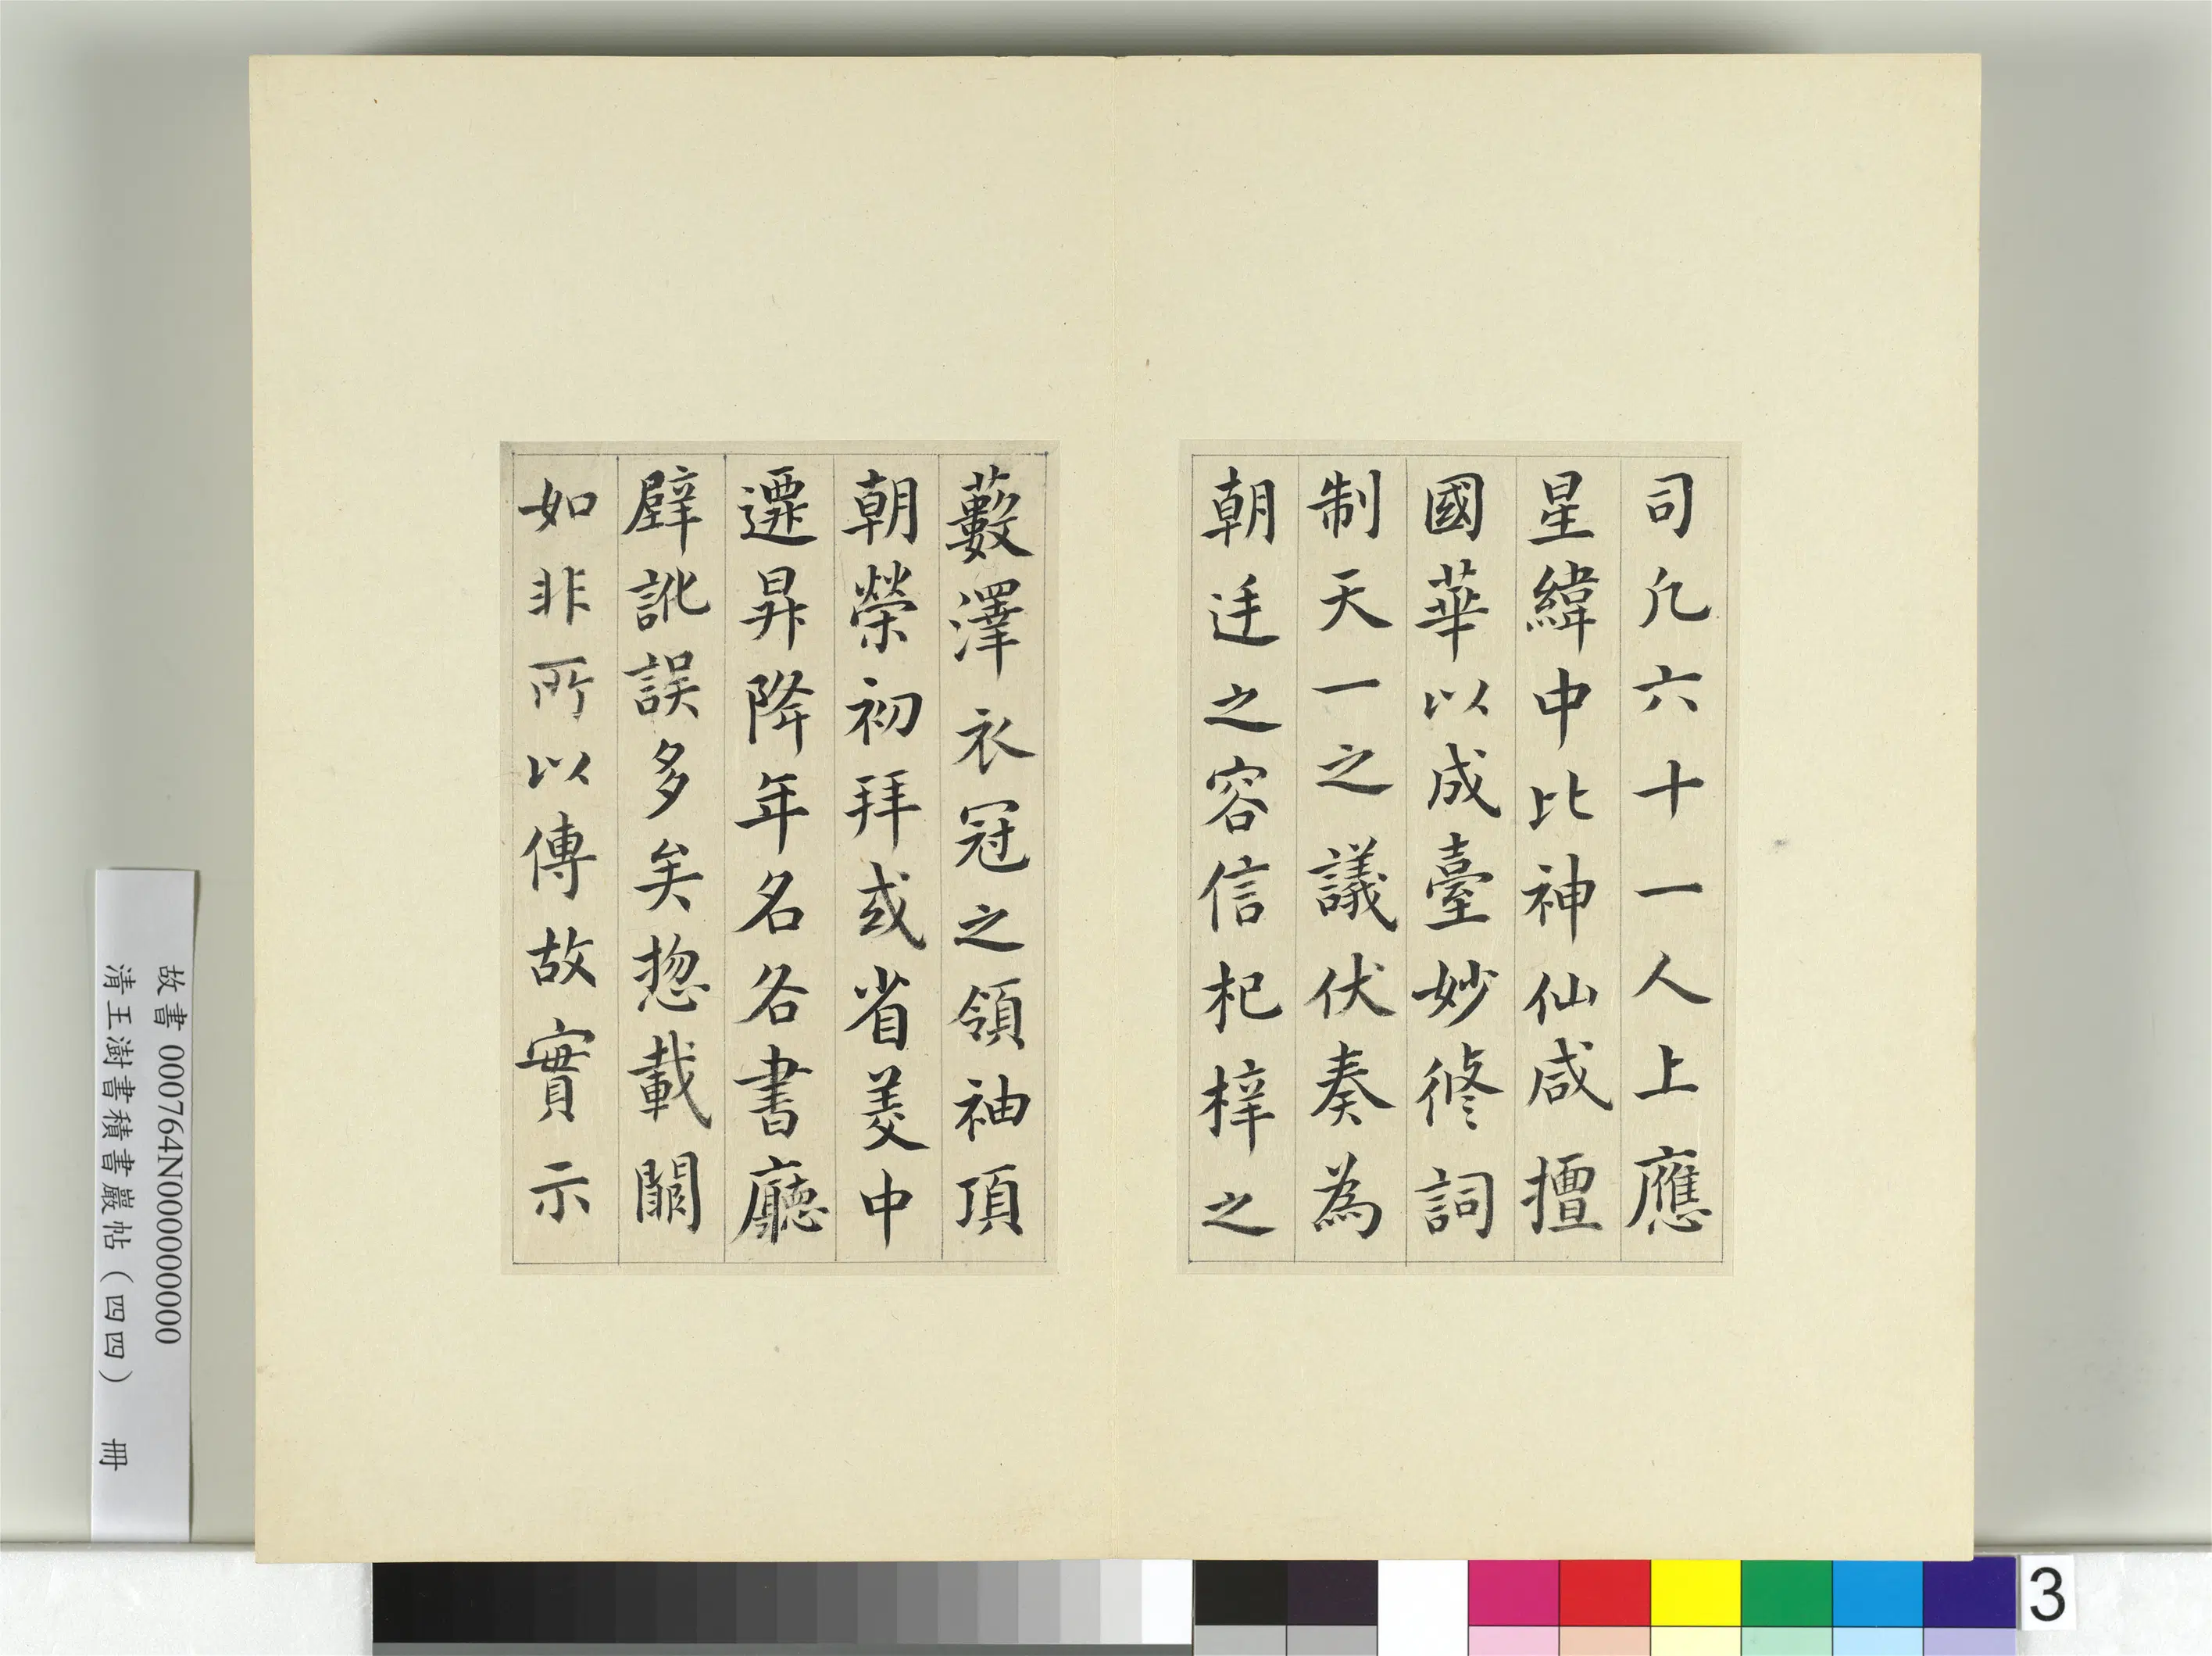 司凢六十一人上應
星緯中比神仙咸擅
國華以成臺妙修詞
制天一之議伏奏為
朝廷之容信杞梓之
藪澤衣冠之領袖頂
朝榮初拜或省美中
遷昇降年名各書廳
壁訛誤多矣揔載闕
如非所以傳故實示
故書 000764N000000000
清王澍書積書巖帖(四四) 冊
3